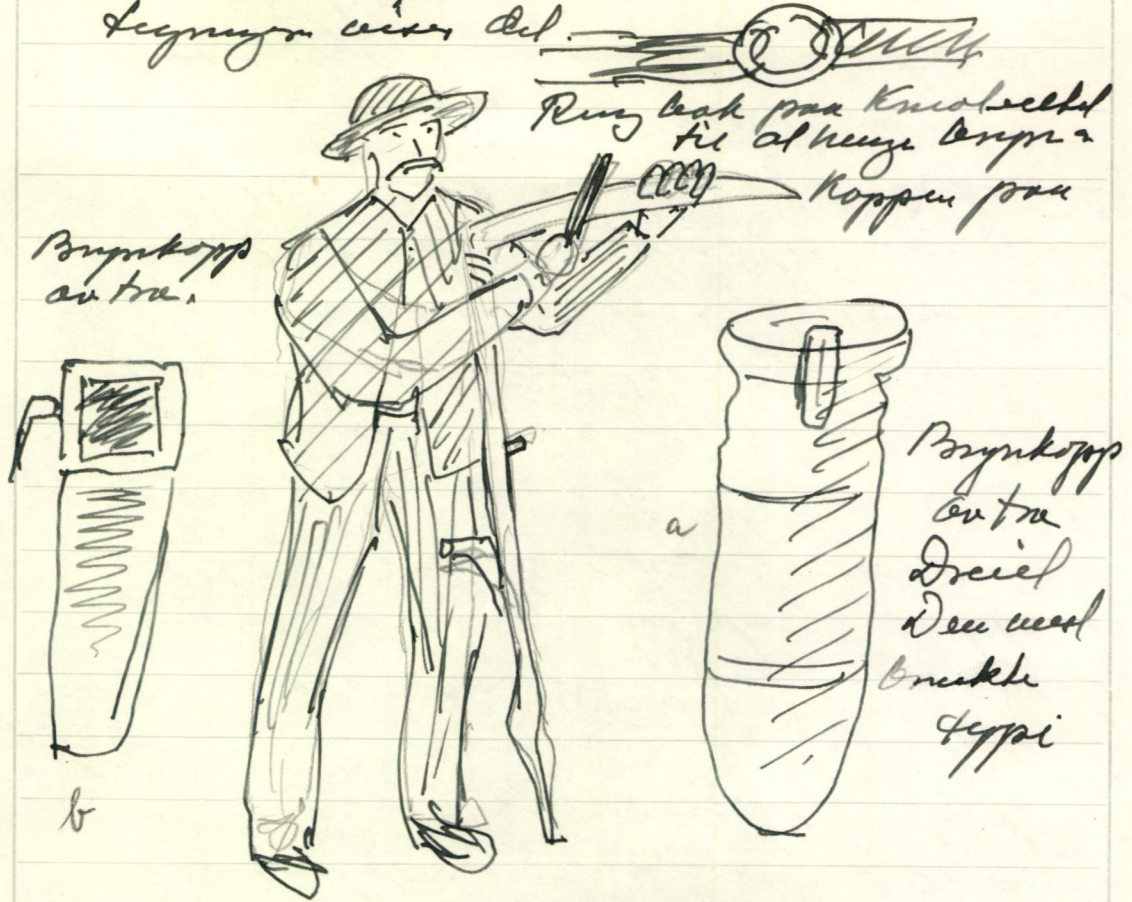 tegningen viser det.
Ring bak paa Knivbeltet
til at henge brynæ
Koppen paa
Brynkopp
av træ.
Brynkopp
av træ
Dreiet
Den mest
brukte
typpe
a
b